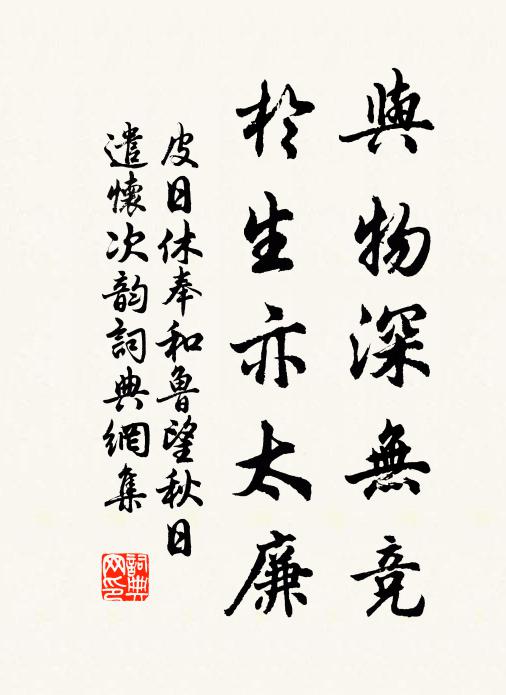 與物深無竞
於生亦太廉
皮日休奉和魯望秋日
遣懷次韵詞典網集
詞典网印